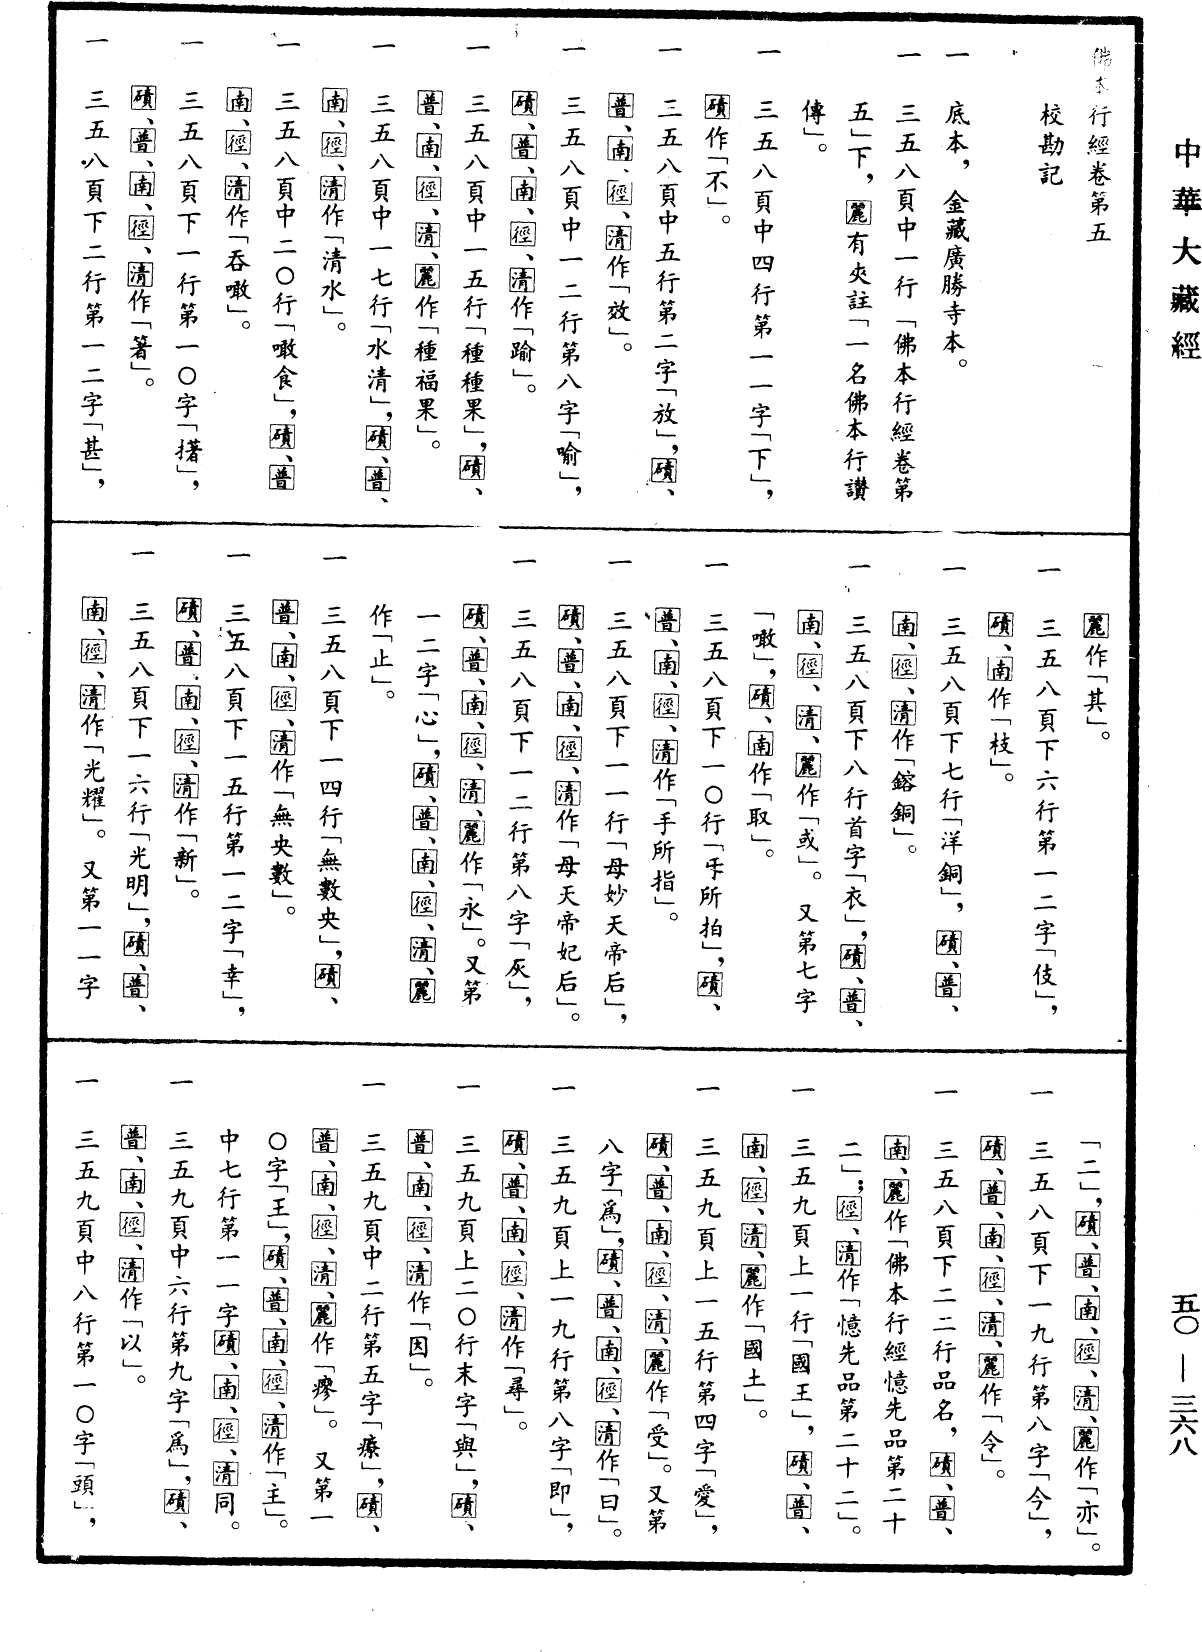 中華大藏經
佛本行經卷第五
校勘記
一 底本，金藏廣勝寺本。
一 三五八頁中一行「佛本行經卷第
五」下，麗有夾註「一名佛本行讚
傳」。
一 三五八頁中四行第一一字「下」，
磧作「不」。
一 三五八頁中五行第二字「放」，磧、
普、南、徑、清作「效」。
一 三五八頁中一二行第八字「喻」，
磧、普、南、徑、清作「踰」。
一 三五八頁中一五行「種種果」，磧、
普、南、徑、清、麗作「種福果」。
一 三五八頁中一七行「水清」，磧、普、
南、徑、清作「清水」。
一 三五八頁中二〇行「噉食」，磧、普
南、徑、清作「吞噉」。
一 三五八頁下一行第一〇字「撯」，
磧、普、南、徑、清作「箸」。
一 三五八頁下二行第一二字「甚」，
麗作「其」。
一 三五八頁下六行第一二字「伎」，
磧、南作「枝」。
一 三五八頁下七行「洋銅」，磧、普、
南、徑、清作「鎔銅」。
一 三五八頁下八行首字「衣」，磧、普、
南、徑、清、麗作「或」。又第七字
「噉」，磧、南作「取」。
一 三五八頁下一〇行「手所拍」，磧、
普、南、徑、清作「手所指」。
一 三五八頁下一一行「母妙天帝后」，
磧、普、南、徑、清作「母天帝妃后」。
一 三五八頁下一二行第八字「灰」，
磧、普、南、徑、清、麗作「永」。又第
一二字「心」，磧、普、南、徑、清、麗
作「止」。
一 三五八頁下一四行「無數央」，磧、
普、南、徑、清作「無央數」。
一 三五八頁下一五行第一二字「幸」，
磧、普、南、徑、清作「新」。
一 三五八頁下一六行「光明」，磧、普、
南、徑、清作「光耀」。又第一一字
「二」，磧、普、南、徑、清、麗作「亦」。
一 三五八頁下一九行第八字「今」，
磧、普、南、徑、清、麗作「令」。
一 三五八頁下二二行品名，磧、普、
南、麗作「佛本行經憶先品第二十
二」；徑、清作「憶先品第二十二」。
一 三五九頁上一行「國王」，磧、普、
南、徑、清、麗作「國土」。
一 三五九頁上一五行第四字「愛」，
磧、普、南、徑、清、麗作「受」。又第
八字「為」，磧、普、南、徑、清作「曰」。
一 三五九頁上一九行第八字「即」，
磧、普、南、徑、清作「尋」。
一 三五九頁上二〇行末字「與」，磧、
普、南、徑、清作「因」。
一 三五九頁中二行第五字「療」，磧、
普、南、徑、清、麗作「瘳」。又第一
〇字「王」，磧、普、南、徑、清作「主」。
中七行第一一字磧、南、徑、清同。
一 三五九頁中六行第九字「為」，磧、
普、南、徑、清作「以」。
一 三五九頁中八行第一〇字「頭」，
五〇—三六八